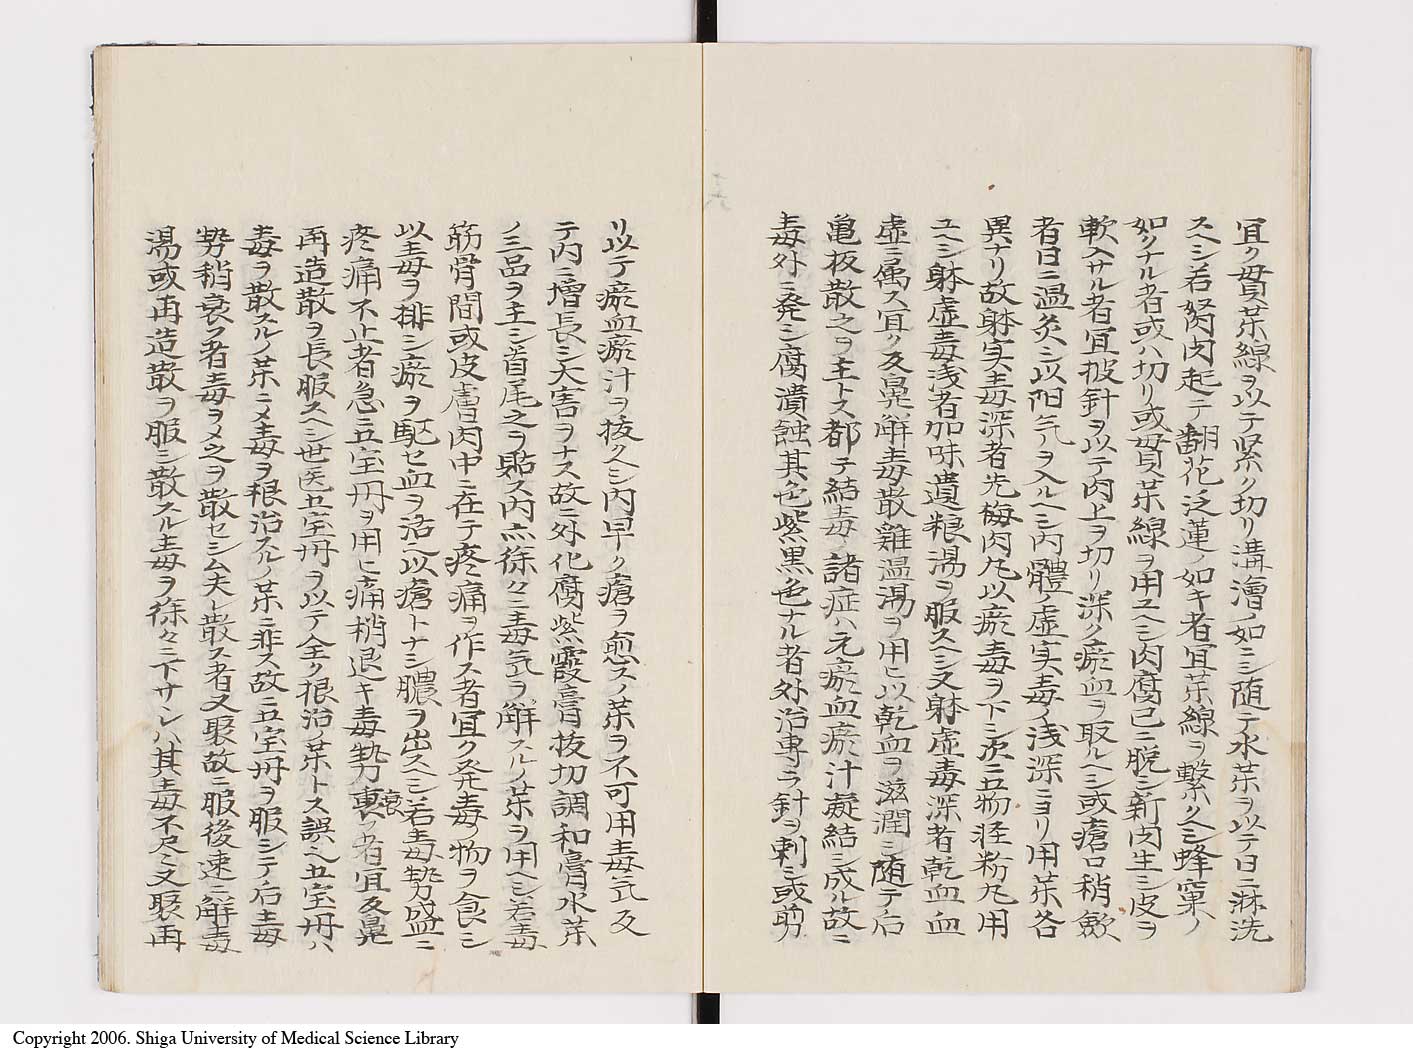 宜ク貫茶線ヲ以テ緊ク切リ溝瀆ノ如ニシ随テ水茶ヲ以テ日ニ淋洗
スヘシ若努肉起テ翻花泛蓮ノ如キ者宜茶線ヲ繋クヘシ蜂窠ノ
如クナル者或ハ切リ或貫茶線ヲ用ユヘシ肉腐已ニ脱シ新肉生シ皮ヲ
軟入サル者宜披針ヲ以テ肉上ヲ切リ深ク瘀血ヲ取ルヘシ或瘡口稍歛
者日ニ温灸シ以阳气ヲ入ルヘシ内體ノ虚実毒ノ浅深ニヨリ用茶各
異ナリ故躰実毒深者先梅肉丸以瘀毒ヲ下シ次ニ五物軽粉丸用
ユヘシ躰虚毒浅者加味遺粮湯ヲ服スヘシ又躰虚毒深者乾血血
虚ニ属ス宜ク反鼻解毒散雞温湯ヲ用ヒ以乾血ヲ滋潤シ随テ后
亀板散之ヲ主トス都テ結毒ノ諸症ハ元瘀血瘀汁凝結ニ成ル故ニ
毒外ニ発シ腐潰蝕其色紫黒色ナル者外治専ラ針ヲ刺シ或剪
リ以テ瘀血瘀汁ヲ抜クヘシ内早ク瘡ヲ愈スノ茶ヲ不可用毒気反
テ内ニ増長シ大害ヲナス故ニ外化腐紫霞膏抜切調和膏水茶
ノ三品ヲ主シ首尾之ヲ貼ス内亦徐々ニ毒気ヲ解スルノ茶ヲ用ヘシ若毒
筋骨間或皮膚肉中ニ在テ疼痛ヲ作ス者宜ク発毒ノ物ヲ食シ
以毒ヲ排シ瘀ヲ駈セ血ヲ活シ以瘡トナシ膿ヲ出スヘシ若毒勢盛ニ
疼痛不止者急ニ五宝丹ヲ用ヒ痛稍退キ毒勢衰フ者宜反鼻
再造散ヲ長服スヘシ世医五宝丹ヲ以テ全ク根治ノ茶トス誤ヘ五宝丹ハ
毒ヲ散スルノ茶ニメ毒ヲ根治スルノ茶ニ非ス故ニ五宝丹ヲ服シテ后毒
勢稍衰フ者毒ヲメ之ヲ散セシム夫レ散ス者又聚故ニ服後速ニ解毒
湯或再造散ヲ服シ散スル毒ヲ徐々ニ下サレハ其毒不尽又聚再
Copyright 2006. Shiga University of Medical Science Library